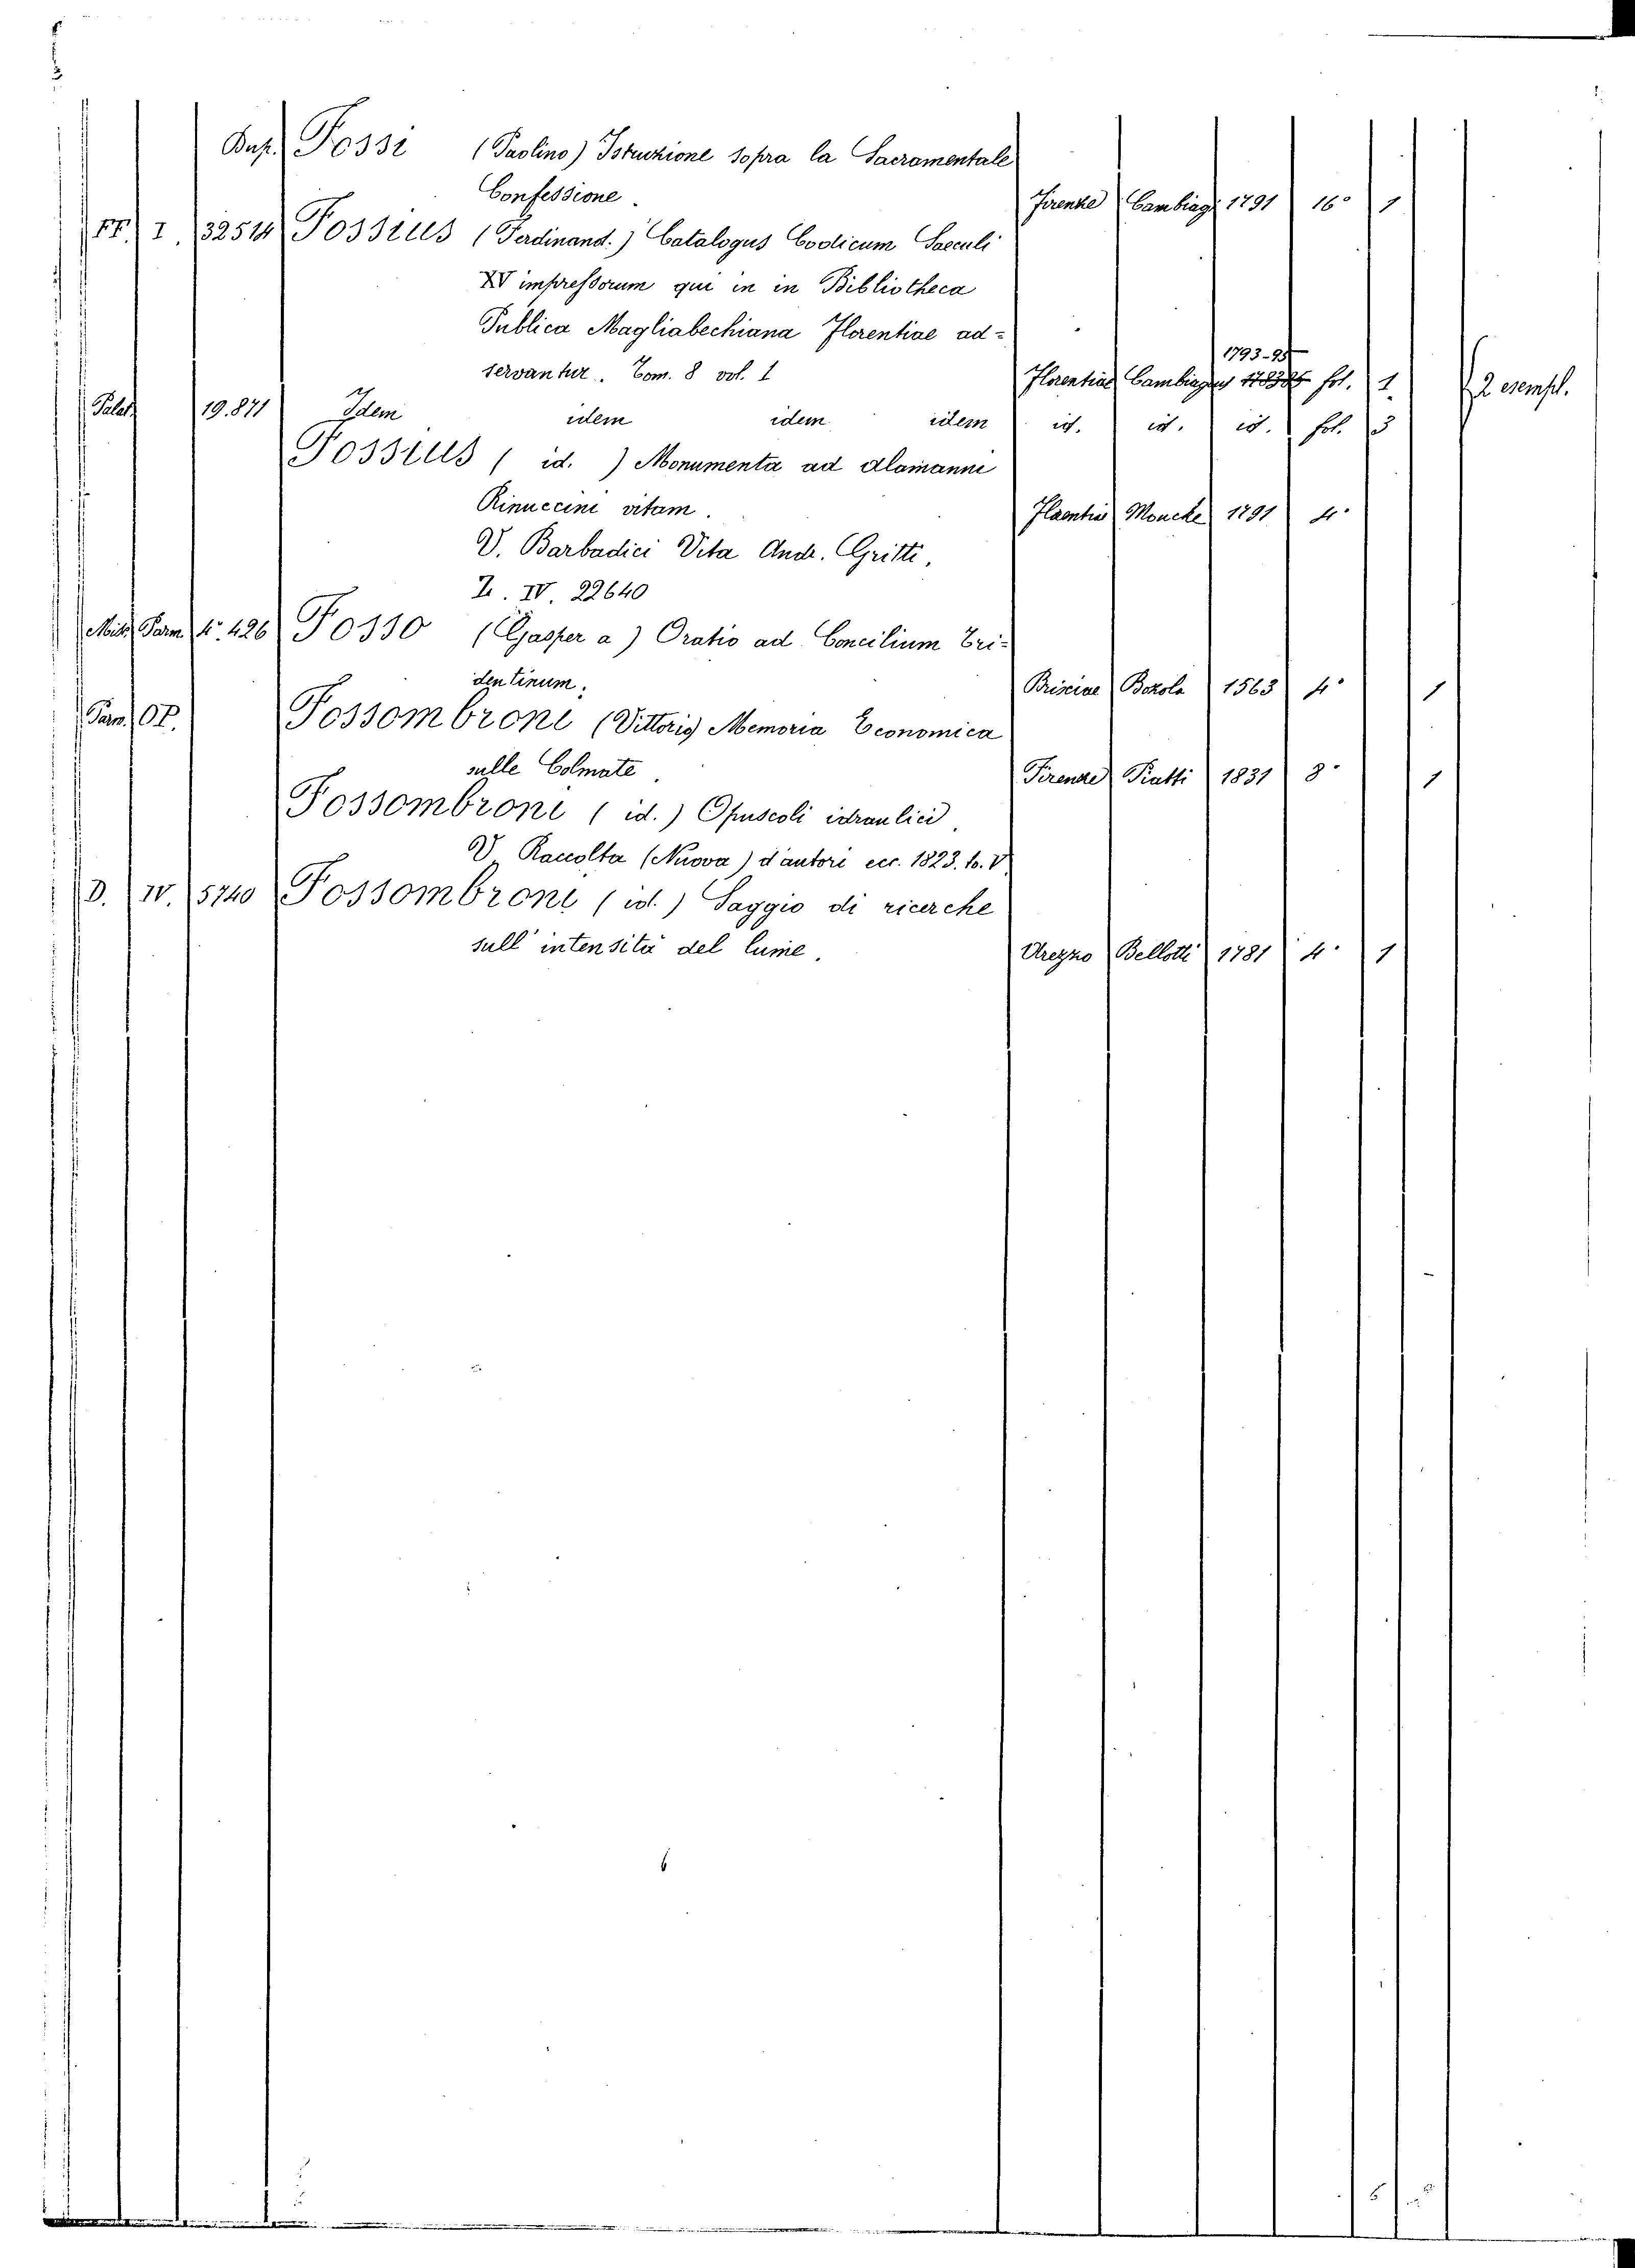 Dup. Fossi (Paolino) Istruzione sopra la Sacramentale
Confessione. Firenze Cambiagi 1791 16° 1
FF. I. 32514 Fossius (Ferdinand.) Catalogus Codicum Saeculi
XV impressorum qui in in Bibliotheca
Publica Magliabechiana Florentiae ad=
1793-95
servantur. Tom. 8 vol. 1 Florentiae Cambiagius fol. 1 2 esempl.
Palat. 19.871 Idem idem idem idem id. id. id. fol. 3
Fossius ( id. ) Monumenta ad Alamanni
Rinuccini vitam. Florentiae Moucke 1791 4°
V. Barbadici Vita Andr. Gritti.
Z. IV. 22640
Misc. Parm. 4° 426 Fosso (Gasper a) Oratio ad Concilium Tri=
dentinum. Brixiae Bozola 1563 4° 1
Parm. OP. Fossombroni (Vittorio) Memoria Economica
sulle Colmate. Firenze Piatti 1831 8° 1
Fossombroni ( id. ) Opuscoli idraulici.
V. Raccolta (Nuova) d'autori ecc. 1823. to. V
D. IV. 5740 Fossombroni ( id. ) Saggio di ricerche
sull' intensità del lume. Arezzo Bellotti 1781 4° 1